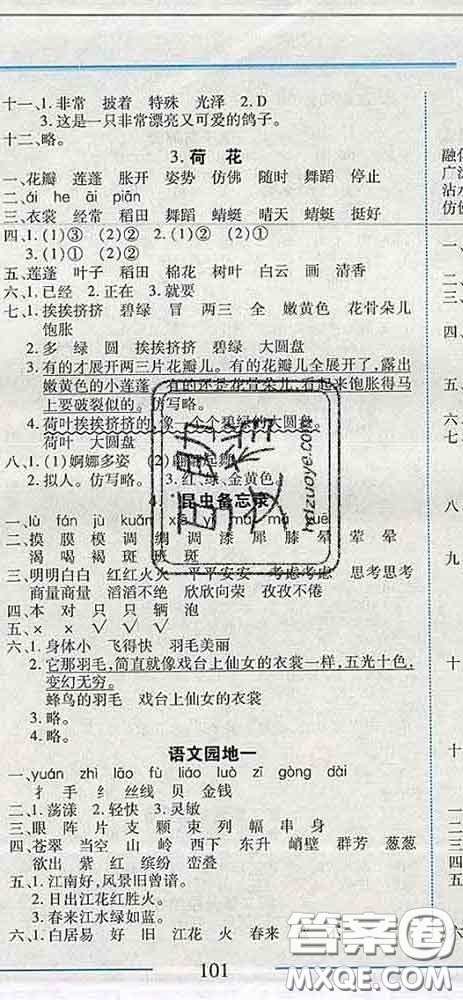 十一、1.非常 披着 特殊 光泽 2.D
3.这是一只非常漂亮又可爱的鸽子。
十二、略。
3.荷 花
一、花瓣 莲蓬 胀开 姿势 仿佛 随时 舞蹈 停止
二、āi he āi piān
三、衣裳 经常 稻田 舞蹈 蜻蜓 晴天 蜻蜓 挺好
四、1.(1)③ (2)② 2.(1)② (2)①
3.(1)① (2)②
五、莲蓬 叶子 稻田 棉花 树叶 白云 画 清香
六、1.已经 2.正在 3.就要
七、1.挨挨挤挤 碧绿 冒 两三 全 嫩黄色 花骨朵儿
饱胀
2.多 绿 圆 挨挨挤挤 碧绿 大圆盘
3.有的才展开两三片花瓣儿。有的花瓣儿全展开了,露出
嫩黄色的小莲蓬。有的还是花骨朵儿,看起来饱胀得马
上要破裂似的。仿写略。
4.荷叶挨挨挤挤的,像一个个碧绿的大圆盘。
荷叶 大圆盘
八、1.(1)婀娜多姿 (2)翩翩起舞
2.拟人。仿写略。 3.红、绿、金黄色。
4.昆虫备忘录
一、lù fán jù kuàn
二、摸 膜 模 调 绸 调 漆 犀 膝 晕 荤 晕
渴 喝 褐 斑 斑 斑
三、明明白白 红红火火 平平安安 考虑考虑 思考思考
商量商量 滔滔不绝 欣欣向荣 孜孜不倦
四、本 对 只 只 辆 泡
五、× × √ √ √
六、1.身体小 飞得快 羽毛美丽
2.它那羽毛,简直就像戏台上仙女的衣裳一样,五光十色,
变幻无穷。
蜂鸟的羽毛 戏台上仙女的衣裳
3.略。
4.略。
语文园地一
一、yuán zhì lāo fù liáo luò zī gòng dài
扌 手 纟 丝线 贝 金钱
二、1.荡漾 2.轻快 3.灵敏
三、眼 阵 片 支 颗 束 列 幅 串 身
四、苍翠 当空 山 岭 西下 东升 峭壁 群芳 葱葱
欲出 紫 红 缤纷 峦叠
五、1.江南好,风景旧曾谙。
2.日出江花红胜火。
3.春来江水绿如蓝。
六、1.白居易 好 旧 江花 火 春来
101
答案圈
MXQE.COM